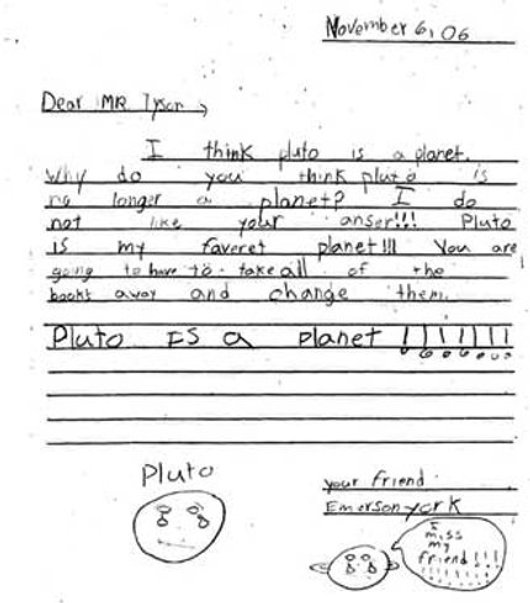 November 6, 06
Dear MR Tyson,
I think pluto is a planet.
Why do you think pluto is
no longer a planet? I do
not like your anser!!! Pluto
is my faveret planet!!! You are
going to have to take all of the
books away and change them.
Pluto IS a planet !!!!!!!
Pluto
your friend
Emerson york
I
miss
my
friend!!!
!!!!!!!